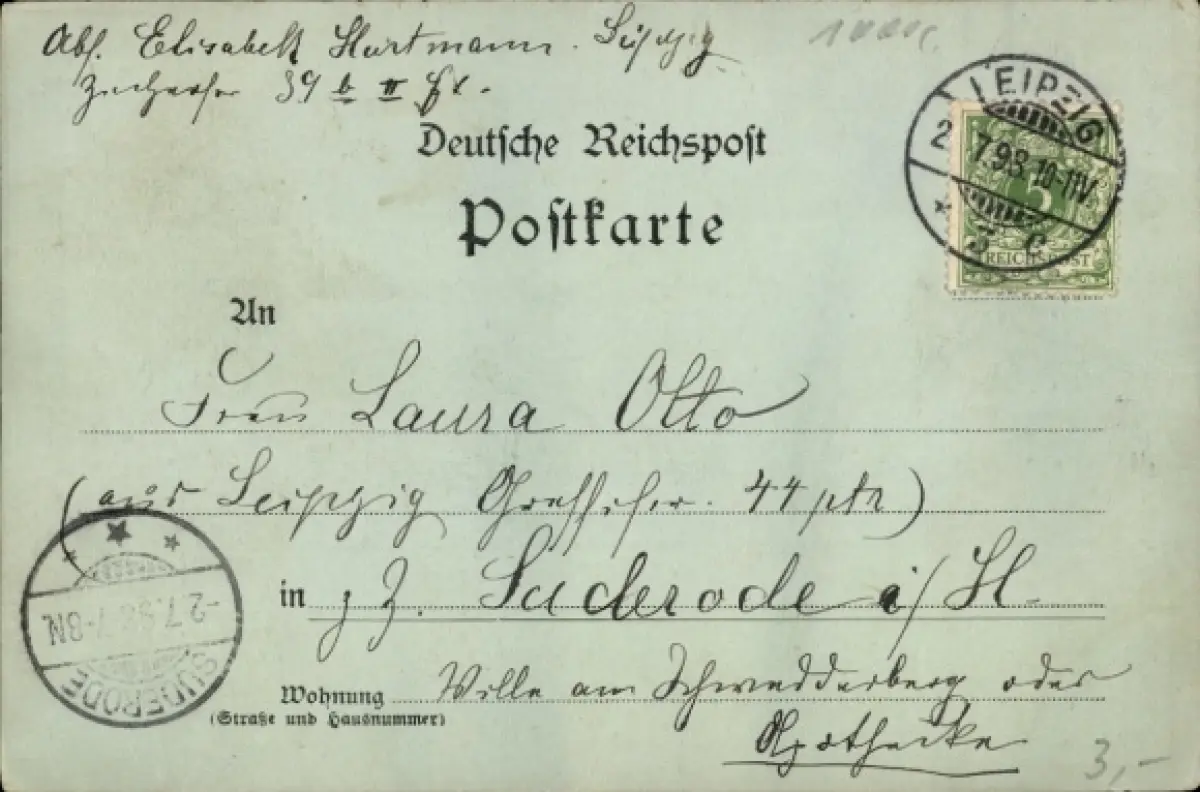 Abs. Elisabeth Hartmann. Leipzig
39 b II
Deutsche Reichspost
Postkarte
LEIPZIG
2. 7.98. 10-11V.
* 5 c
5
REICHSPOST
An
Frau Laura Otto
(aus Leipzig 44 ptr)
in z. Z. Suderode i/H.
Wohnung Villa am Schwedderberg oder
(Straße und Hausnummer)
Apotheke
SUDERODE
-2.7.98.7-8N.
3,-